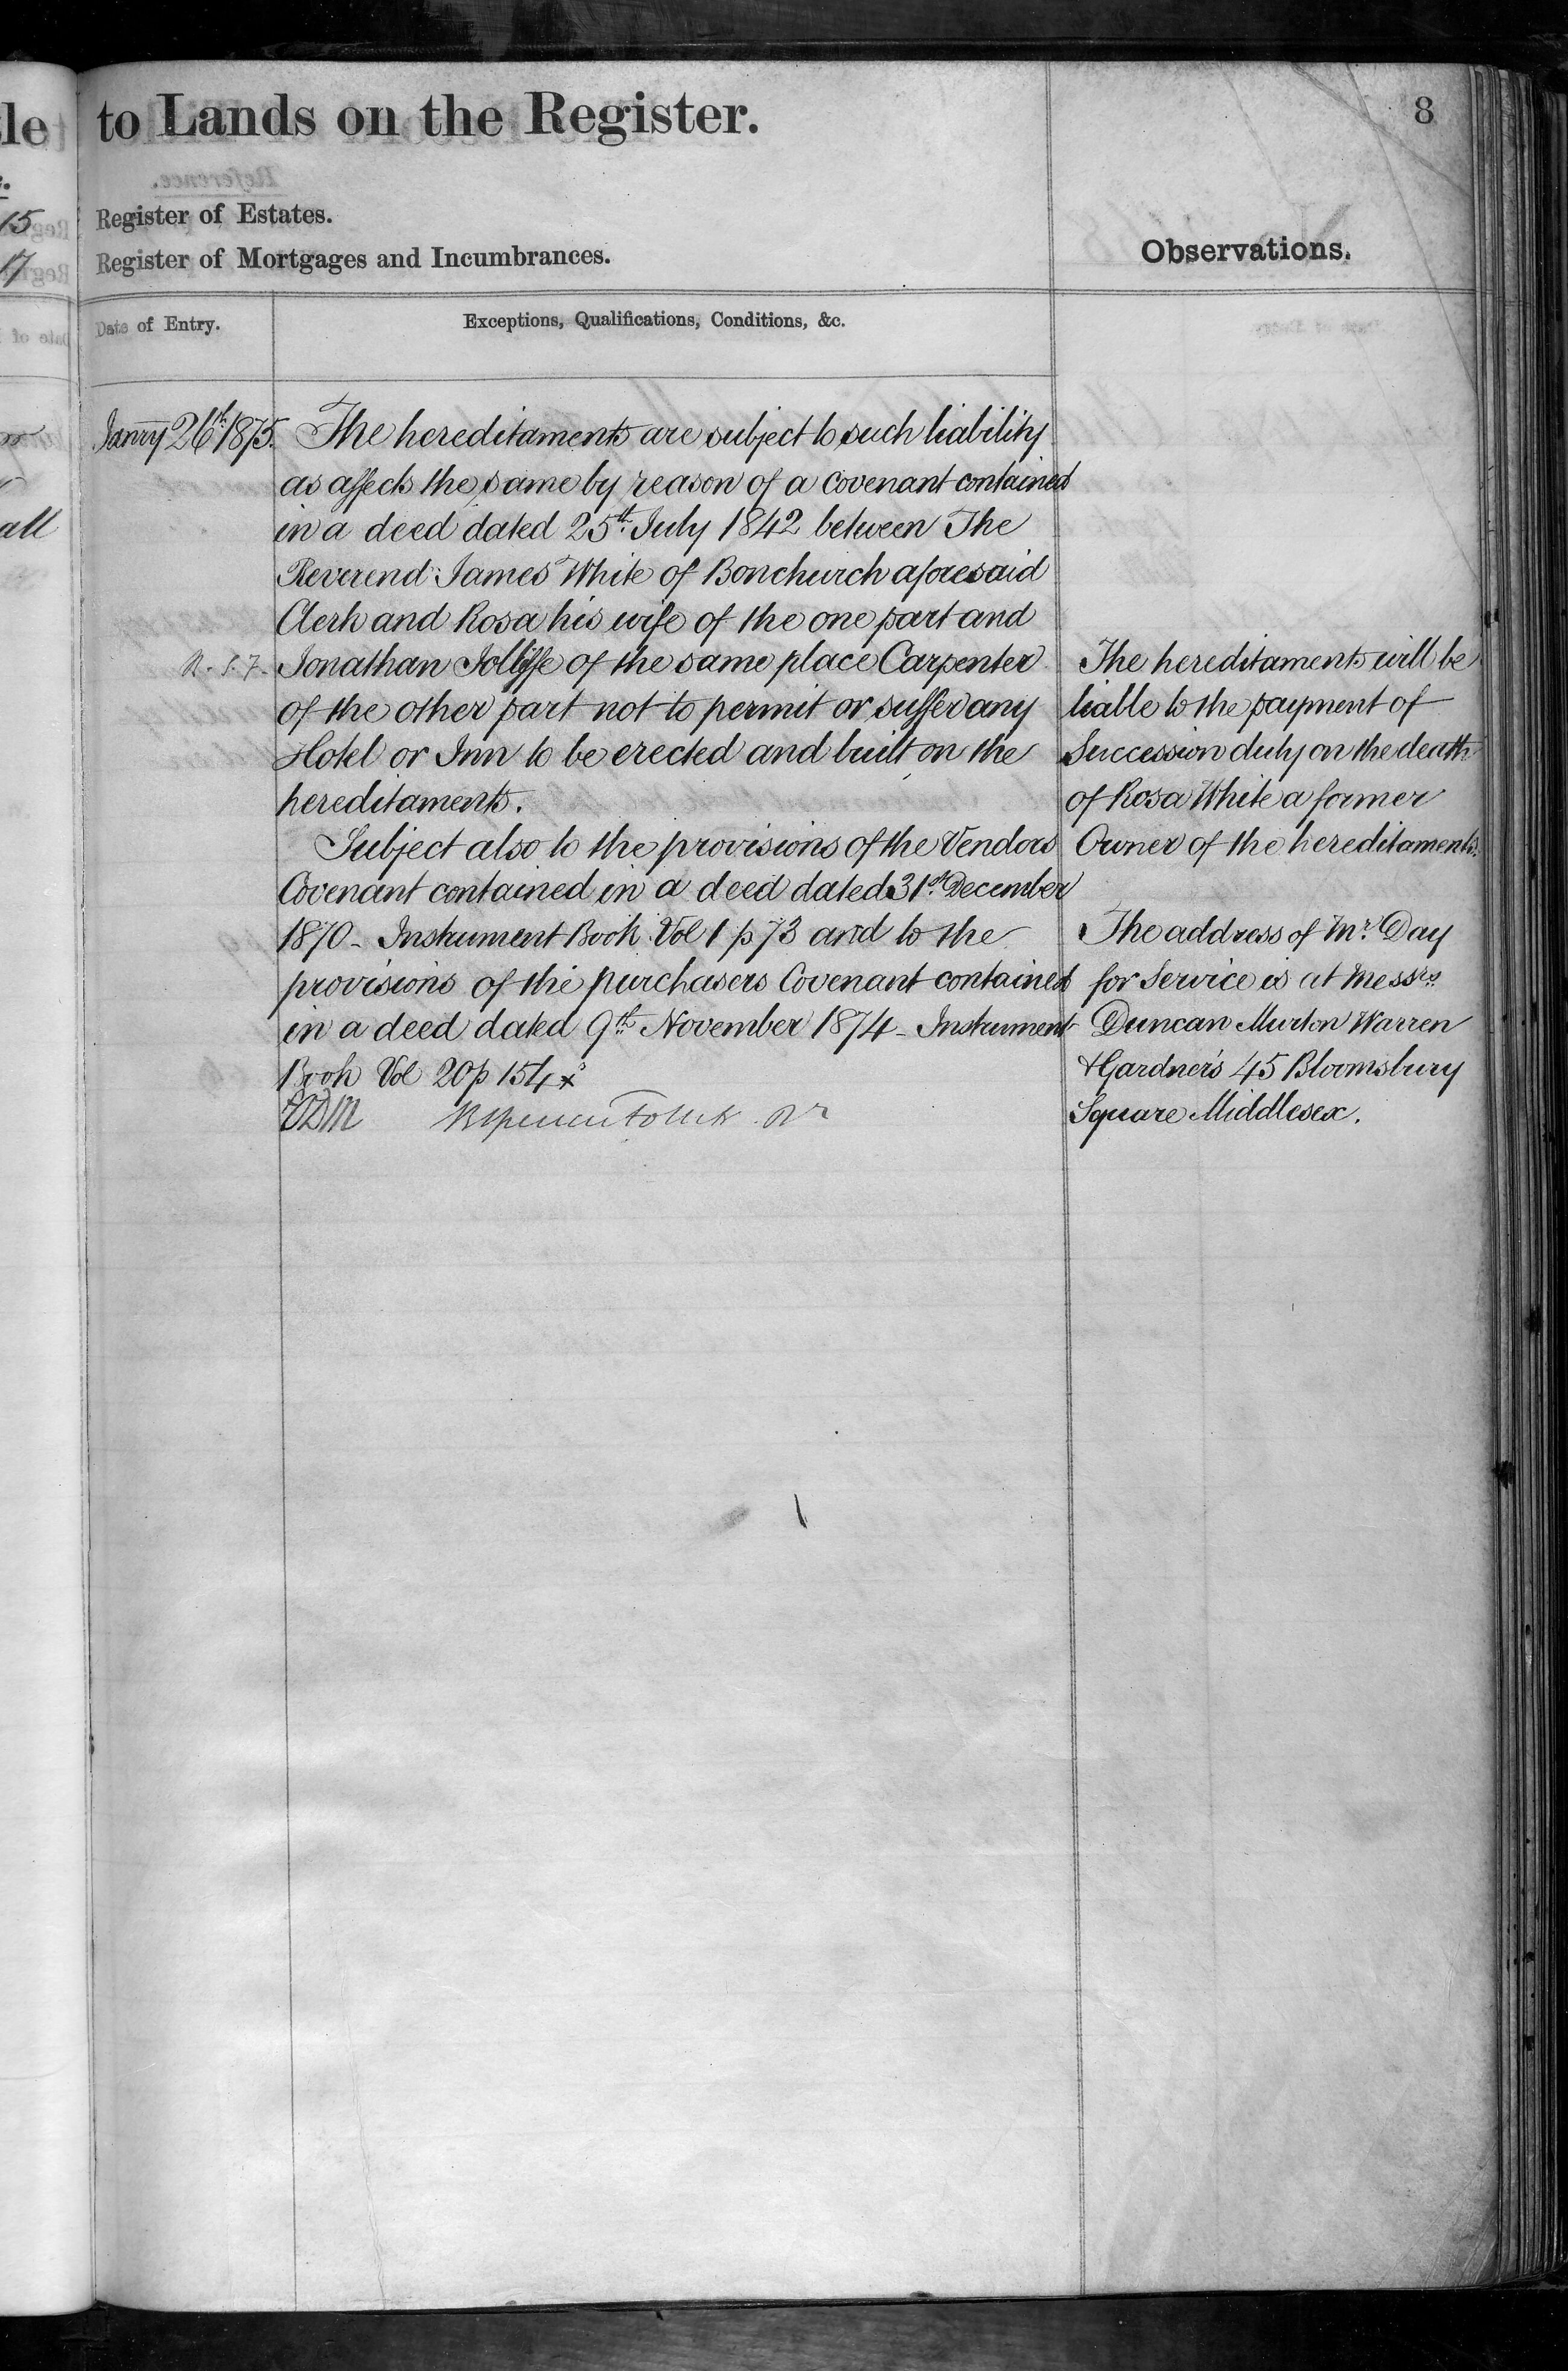 to Lands on the Register.
8
Register of Estates.
Register of Mortgages and Incumbrances.
Observations.
Date of Entry.
Exceptions, Qualifications, Conditions, &c.
Janry 26th 1875.
The hereditaments are subject to such liability
as affects the same by reason of a covenant contained
in a deed dated 25th July 1842 between The
Reverend James White of Bonchurch aforesaid
Clerk and Rosa his wife of the one part and
Jonathan Jolliffe of the same place Carpenter
of the other part not to permit or suffer any
Hotel or Inn to be erected and built on the
hereditaments.
Subject also to the provisions of the Vendors
Covenant contained in a deed dated 31st December
1870 - Instrument Book Vol 1 p 73 and to the
provisions of the purchasers Covenant contained
in a deed dated 9th November 1874 - Instrument
Book Vol 20 p 154 x
The hereditaments will be
liable to the payment of
Succession duty on the death
of Rosa White a former
Owner of the hereditaments.
The address of Mr. Day
for Service is at Messrs.
Duncan Murton Warren
& Gardner's 45 Bloomsbury
Square Middlesex.